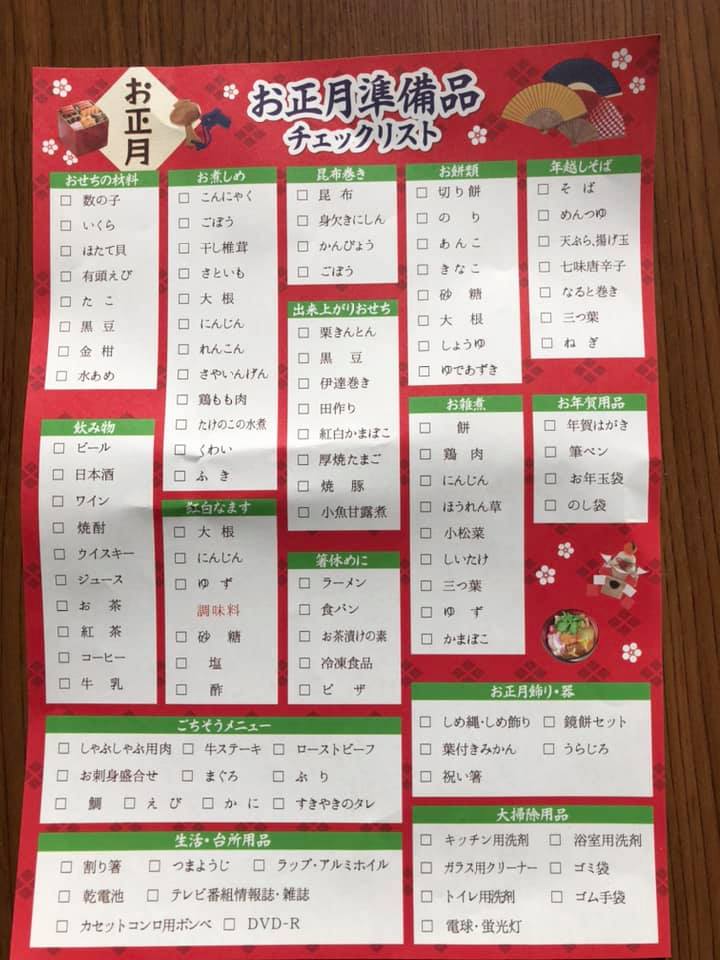 お正月
お正月準備品
チェックリスト
おせちの材料
□ 数の子
□ いくら
□ ほたて貝
□ 有頭えび
□ たこ
□ 黒豆
□ 金柑
□ 水あめ
お煮しめ
□ こんにゃく
□ ごぼう
□ 干し椎茸
□ さといも
□ 大根
□ にんじん
□ れんこん
□ さやいんげん
□ 鶏もも肉
□ たけのこの水煮
□ くわい
□ ふき
昆布巻き
□ 昆布
□ 身欠きにしん
□ かんぴょう
□ ごぼう
お餅類
□ 切り餅
□ のり
□ あんこ
□ きなこ
□ 砂糖
□ 大根
□ しょうゆ
□ ゆであずき
年越しそば
□ そば
□ めんつゆ
□ 天ぷら、揚げ玉
□ 七味唐辛子
□ なると巻き
□ 三つ葉
□ ねぎ
出来上がりおせち
□ 栗きんとん
□ 黒豆
□ 伊達巻き
□ 田作り
□ 紅白かまぼこ
□ 厚焼たまご
□ 焼豚
□ 小魚甘露煮
飲み物
□ ビール
□ 日本酒
□ ワイン
□ 焼酎
□ ウイスキー
□ ジュース
□ お茶
□ 紅茶
□ コーヒー
□ 牛乳
紅白なます
□ 大根
□ にんじん
□ ゆず
調味料
□ 砂糖
□ 塩
□ 酢
箸休めに
□ ラーメン
□ 食パン
□ お茶漬けの素
□ 冷凍食品
□ ピザ
お雑煮
□ 餅
□ 鶏肉
□ にんじん
□ ほうれん草
□ 小松菜
□ しいたけ
□ 三つ葉
□ ゆず
□ かまぼこ
お年賀用品
□ 年賀はがき
□ 筆ペン
□ お年玉袋
□ のし袋
ごちそうメニュー
□ しゃぶしゃぶ用肉 □ 牛ステーキ □ ローストビーフ
□ お刺身盛合せ □ まぐろ □ ぶり
□ 鯛 □ えび □ かに □ すきやきのタレ
お正月飾り・器
□ しめ縄・しめ飾り □ 鏡餅セット
□ 葉付きみかん □ うらじろ
□ 祝い箸
生活・台所用品
□ 割り箸 □ つまようじ □ ラップ・アルミホイル
□ 乾電池 □ テレビ番組情報誌・雑誌
□ カセットコンロ用ボンベ □ DVD-R
大掃除用品
□ キッチン用洗剤 □ 浴室用洗剤
□ ガラス用クリーナー □ ゴミ袋
□ トイレ用洗剤 □ ゴム手袋
□ 電球・蛍光灯